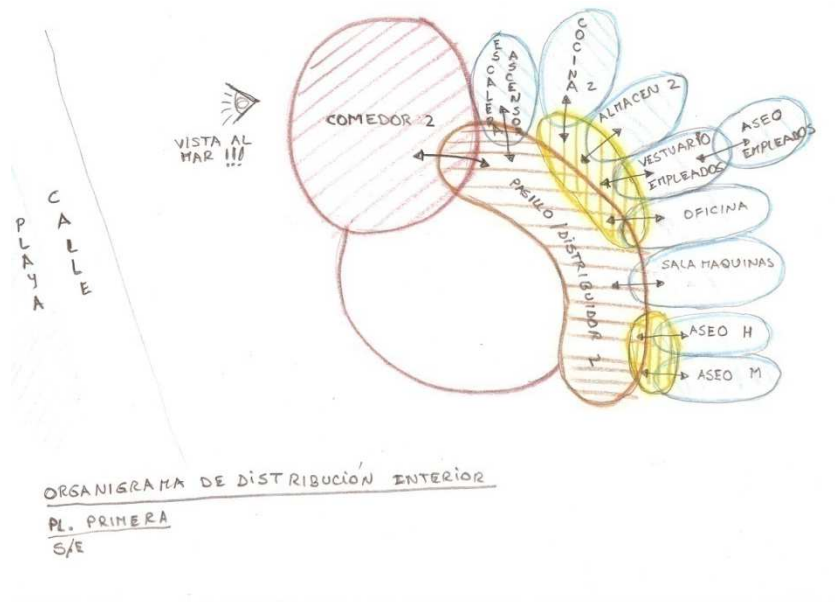 PLAYA
CALLE
VISTA AL
MAR !!!
COMEDOR 2
ESCALERA
ASCENSOR
COCINA 2
ALMACEN 2
VESTUARIO
EMPLEADOS
ASEO
EMPLEADOS
OFICINA
SALA MAQUINAS
ASEO H
ASEO M
PASILLO/DISTRIBUIDOR 2
ORGANIGRAMA DE DISTRIBUCIÓN INTERIOR
PL. PRIMERA
S/E